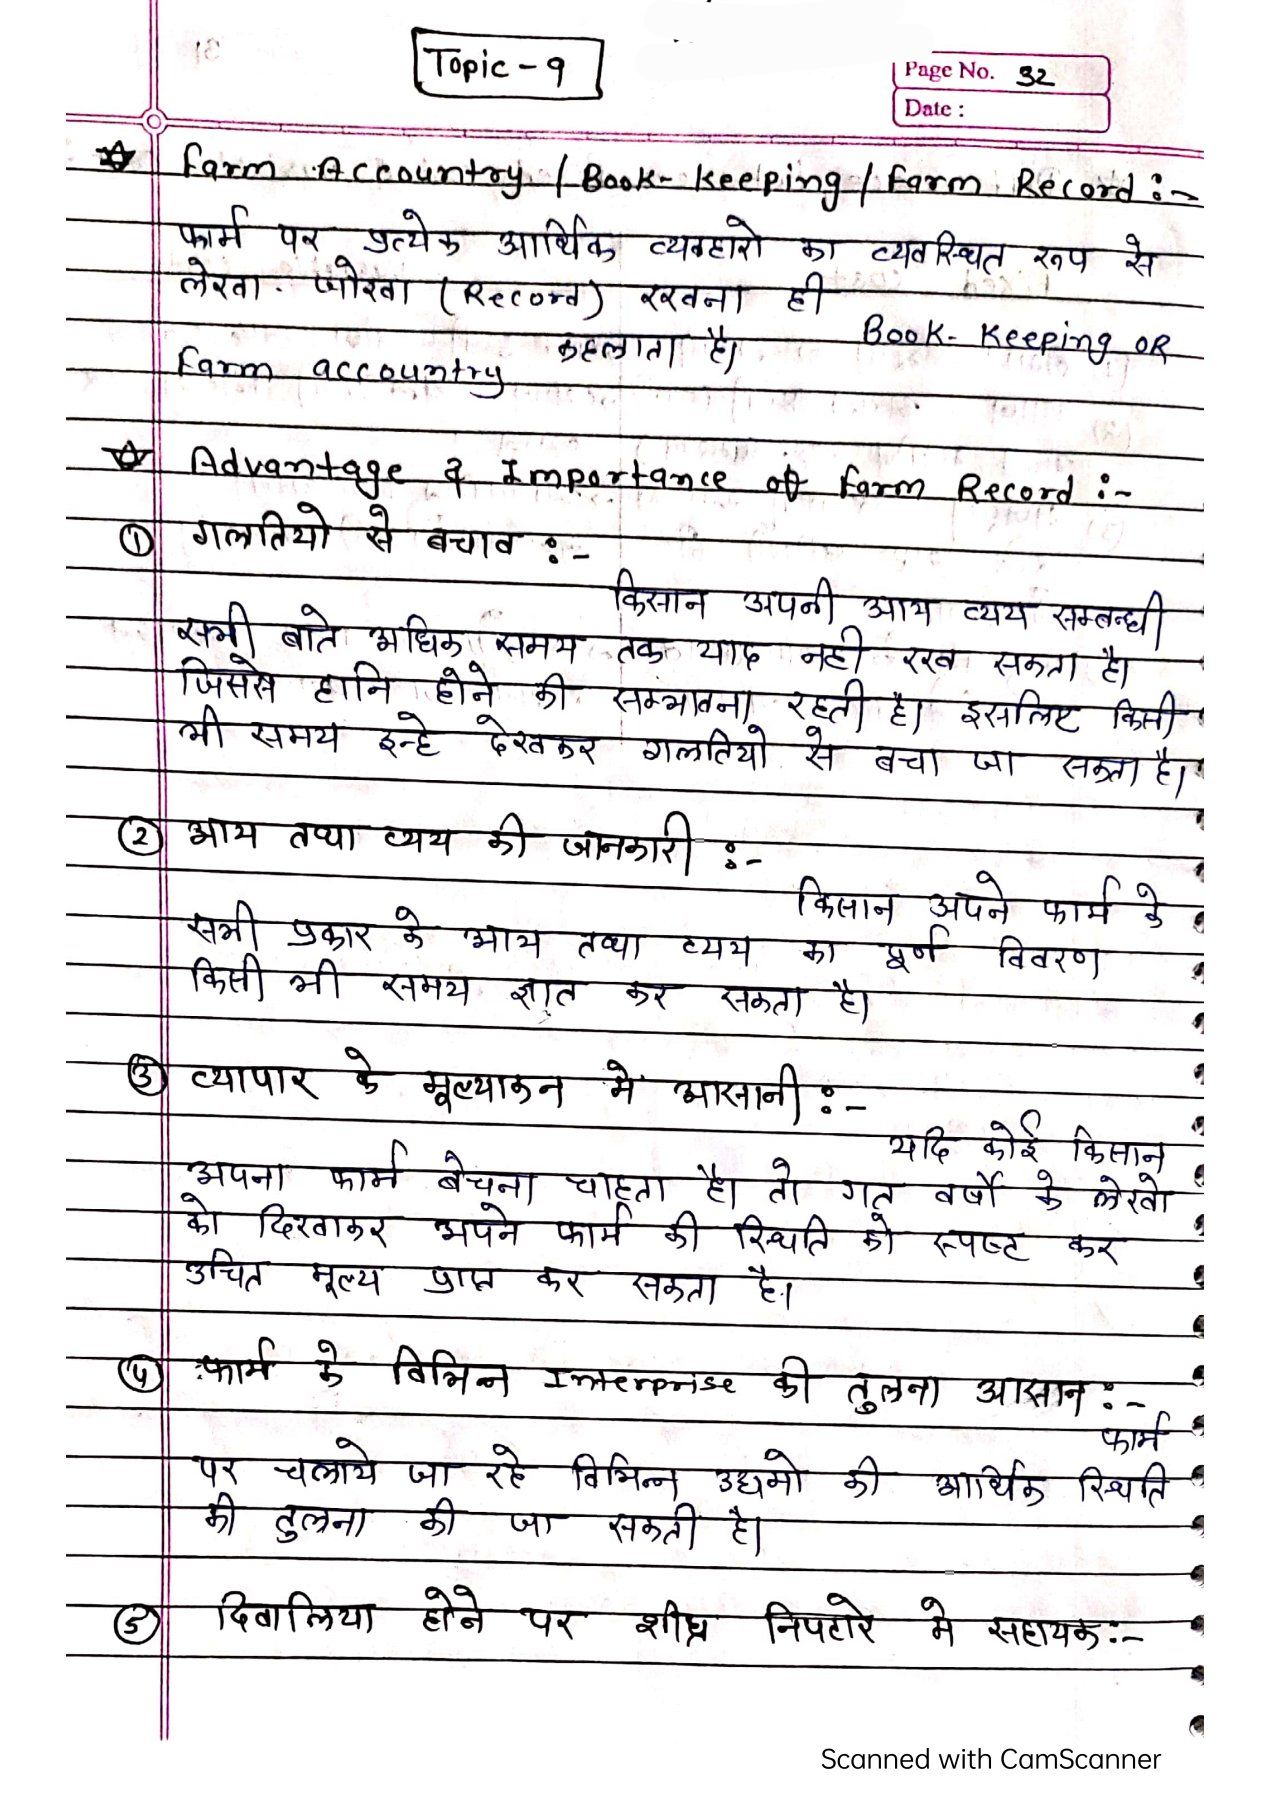 Topic - 9
Page No. 32
Date :
Farm Accountry / Book-Keeping / Farm Record :-
फार्म पर प्रत्येक आर्थिक व्यवहारो का व्यवस्थित रूप से
लेखा-जोखा (Record) रखना ही
Book-Keeping OR
Farm accountry कहलाता है।
Advantage & Importance of Farm Record :-
① गलतियो से बचाव :-
किसान अपनी आय व्यय सम्बन्धी
सभी बाते अधिक समय तक याद नही रख सकता है।
जिससे हानि होने की सम्भावना रहती है। इसलिए किसी
भी समय इन्हे देखकर गलतियो से बचा जा सकता है।
② आय तथा व्यय की जानकारी :-
किसान अपने फार्म के
सभी प्रकार के आय तथा व्यय का पूर्ण विवरण
किसी भी समय ज्ञात कर सकता है।
③ व्यापार के मूल्याकन मे आसानी :-
यदि कोई किसान
अपना फार्म बेचना चाहता है। तो गत वर्षो के लेखो
को दिखाकर अपने फार्म की स्थिति को स्पष्ट कर
उचित मूल्य प्राप्त कर सकता है।
④ फार्म के विभिन्न Interprise की तुलना आसान :-
फार्म
पर चलाये जा रहे विभिन्न उद्यमो की आर्थिक स्थिति
की तुलना की जा सकती है।
⑤ दिवालिया होने पर शीघ्र निपटारे मे सहायक :-
Scanned with CamScanner